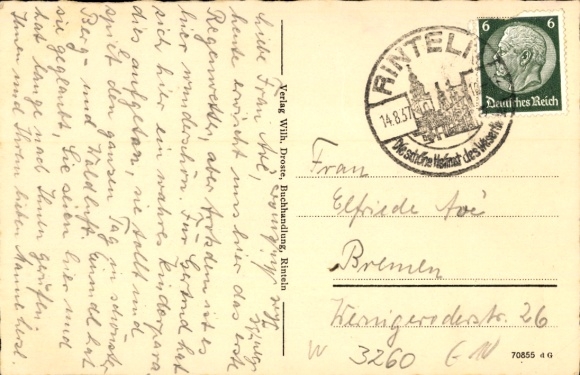 Liebe Frau Avé,
heute erwischt uns hier das erste
Regenwetter, aber trotzdem ist es
hier wunderschön. Für Gertrud hat
sich hier ein wahres Kinderpara-
dies aufgetan, sie tollt und
spielt den ganzen Tag in schönster
Berg- und Waldluft. Einmal hat
sie geglaubt, Sie seien hier und
hat lange nach Ihnen gerufen.
Ihnen und Ihrem lieben Manne herzl.
Verlag Wilh. Droste, Buchhandlung, Rinteln
RINTELN
14.8.37
Die schöne Heimat des
6 6
Deutsches Reich
Frau
Elfriede Avé
Bremen
Wernigeroderstr. 26
W 3260
70855 4 G